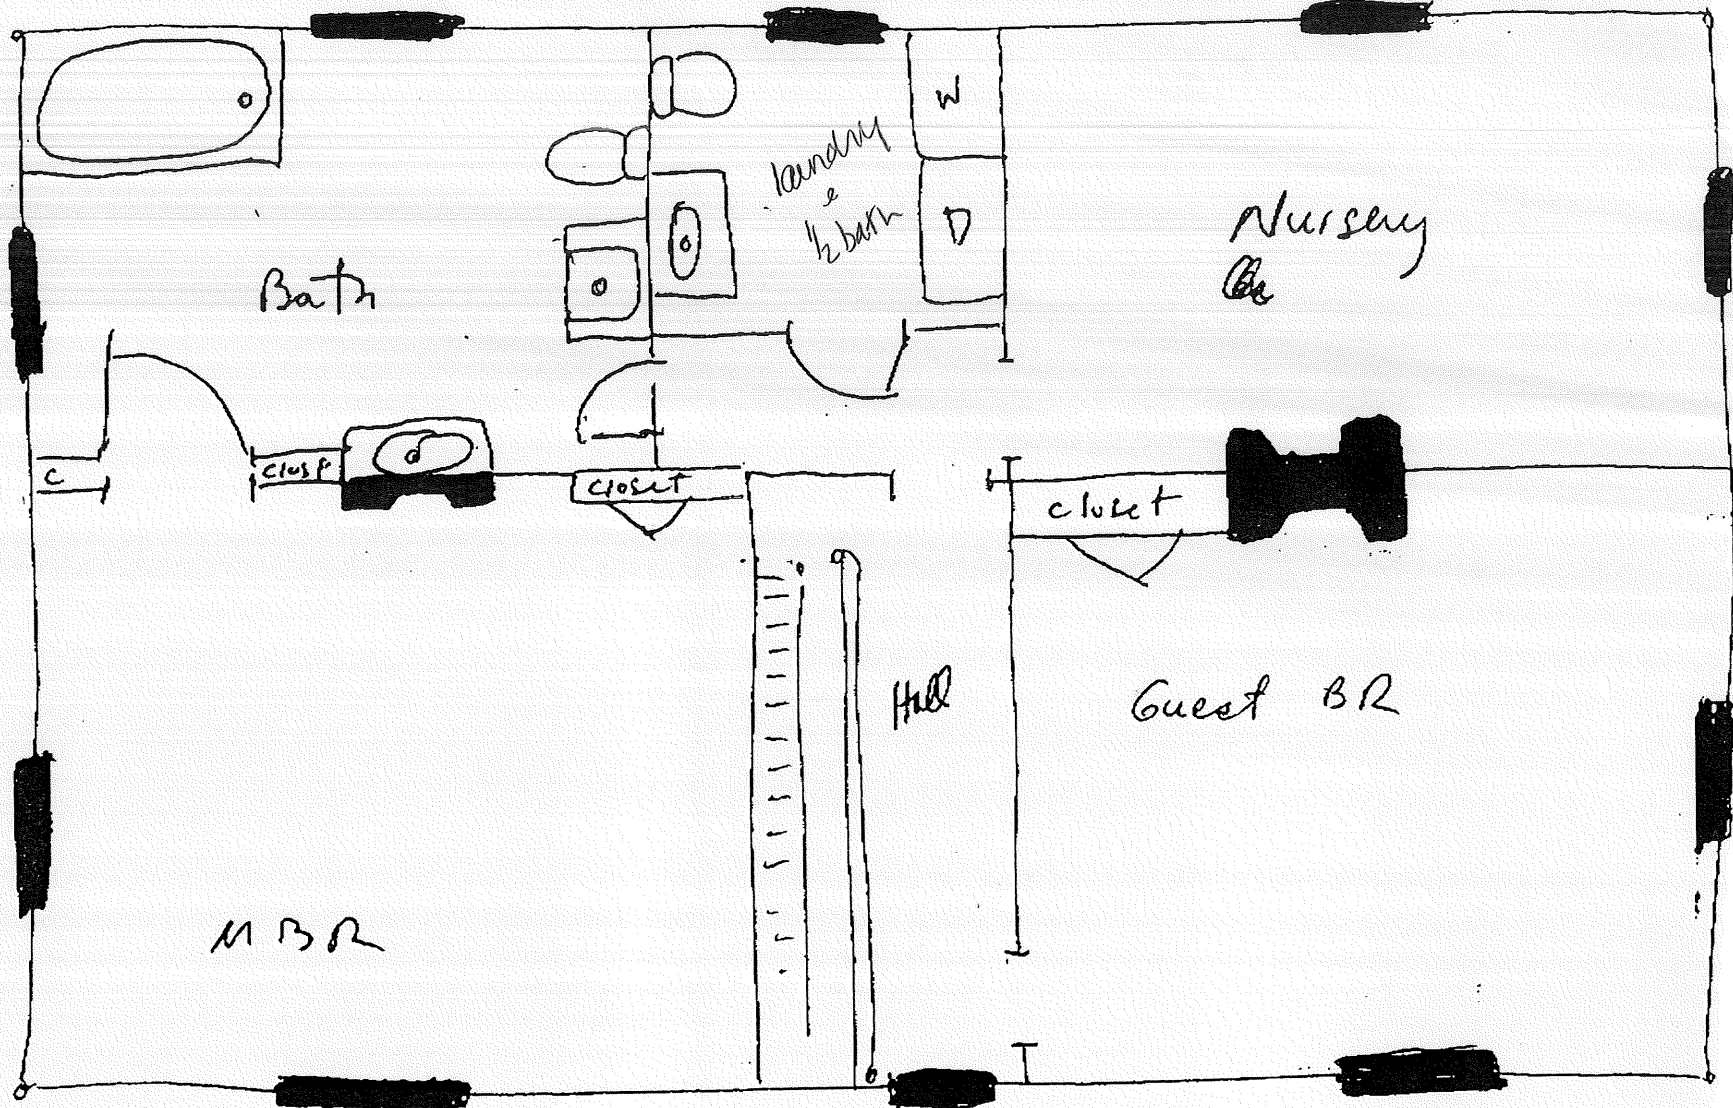 W
laundry
&
1/2 bath
D
Nursery
Bath
C
clost
closet
closet
Hall
Guest BR
MBR